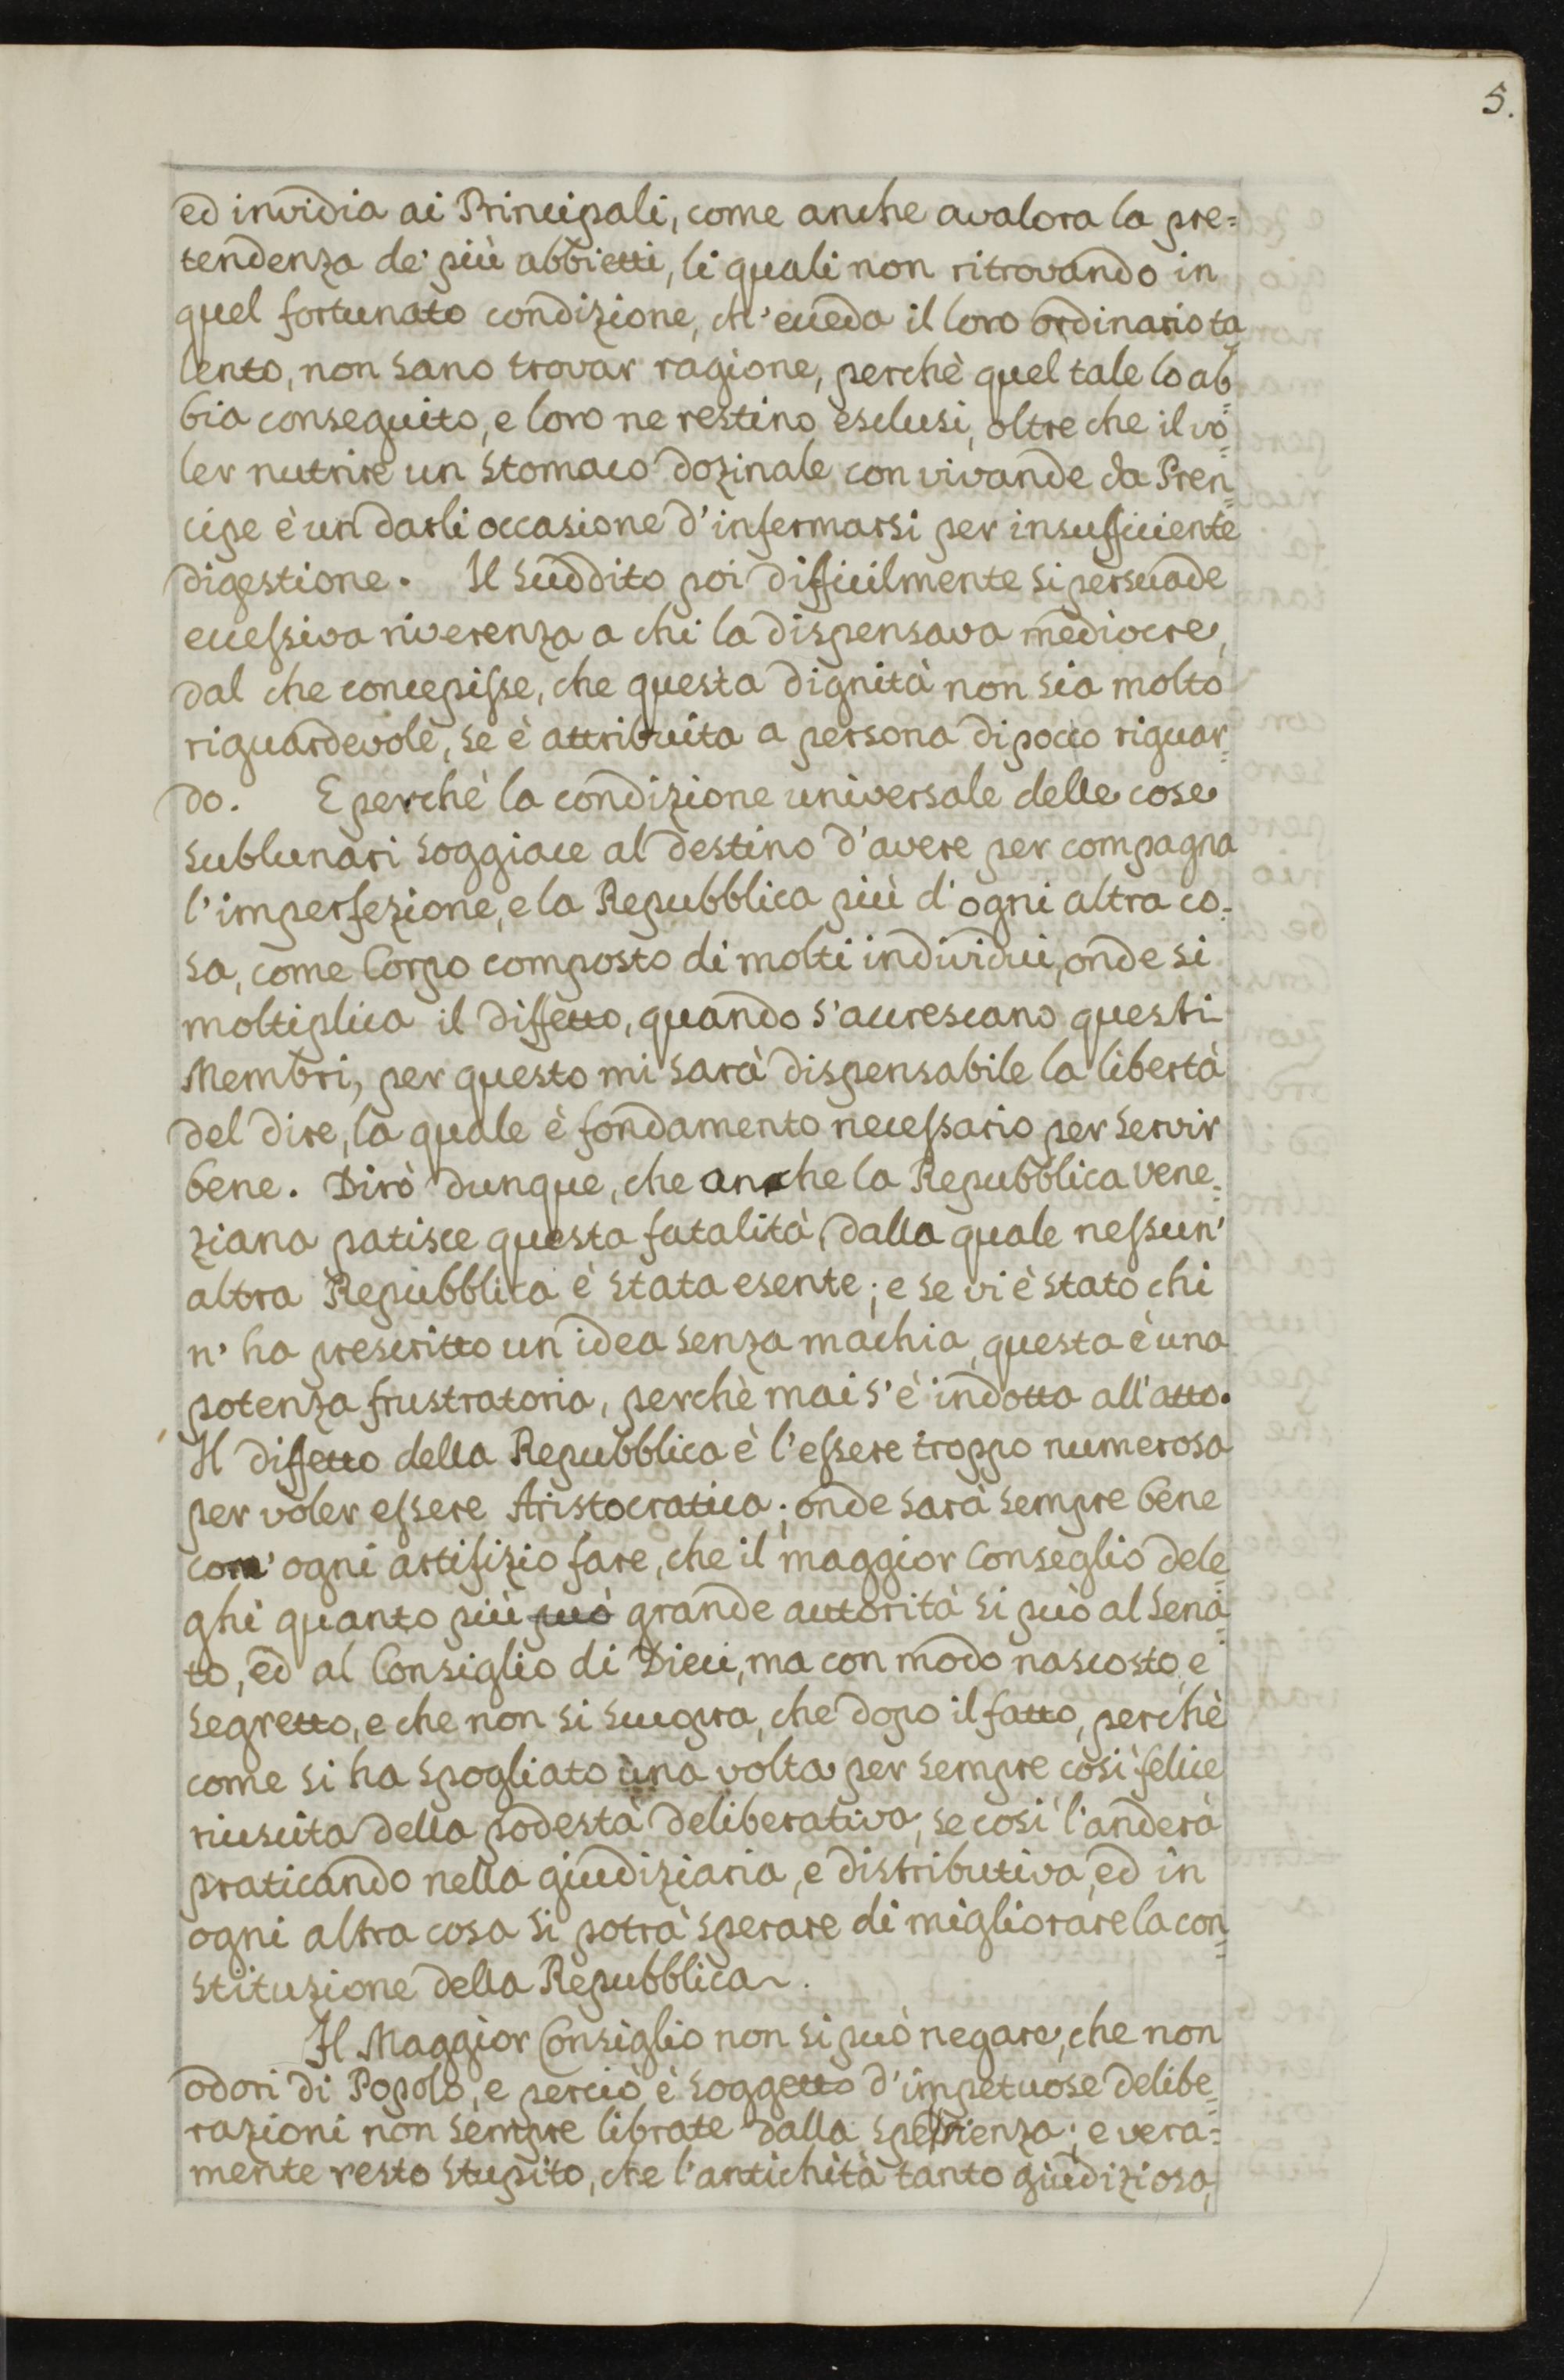 5.
ed invidia ai Principali, come anche avalora la pre=
tendenza de' più abbietti, li quali non ritrovando in
quel fortunato condizione, ch'ecceda il loro ordinario ta
lento, non sano trovar ragione, perchè quel tale lo ab=
bia conseguito, e loro ne restino esclusi, oltre che il vo=
ler nutrire un stomaco dozinale con vivande da Pren=
cipe è un darli occasione d'infermarsi per insufficiente
digestione. Il suddito poi difficilmente si persuade
eccessiva riverenza a chi la dispensava mediocre,
dal che concepisse, che questa dignità non sia molto
riguardevole, se è attribuita a persona di pocco riguar=
do. E perchè la condizione universale delle cose
sublunari soggiace al destino d'avere per compagna
l'imperfezione, e la Repubblica più d'ogni altra co=
sa, come Corpo composto di molti individui, onde si
moltiplica il diffetto, quando s'accrescano questi
Membri, per questo mi sarà dispensabile la libertà
del dire, la quale è fondamento necessario per servir
bene. Dirò dunque, che anche la Repubblica Vene=
ziana patisce questa fatalità, dalla quale nessun'
altra Repubblica è stata esente; e se vi è stato chi
n' ha prescritto un idea senza machia, questa è una
potenza frustratoria, perchè mai s'è indotta all'atto.
Il diffetto della Repubblica è l'essere troppo numerosa
per voler essere Aristocratica; onde sarà sempre bene
con' ogni artifizio fare, che il maggior Conseglio dele=
ghi quanto più può grande autorità si può al Sena=
to, ed al Consiglio di Dieci, ma con modo nascosto, e
segretto, e che non si scuopra, che dopo il fatto, perchè
come si ha spogliato una volta per sempre così felice
riuscita della podestà deliberativa, se così l'anderà
praticando nella giudiziaria, e distributiva, ed in
ogni altra cosa si potrà sperare di migliorare la con=
stituzione della Repubblica.
Il Maggior Consiglio non si può negare, che non
odori di Popolo, e perciò è soggetto d'impetuose delibe=
razioni non sempre librate dalla sperienza; e vera=
mente resto stupito, che l'antichità tanto giudiziosa,